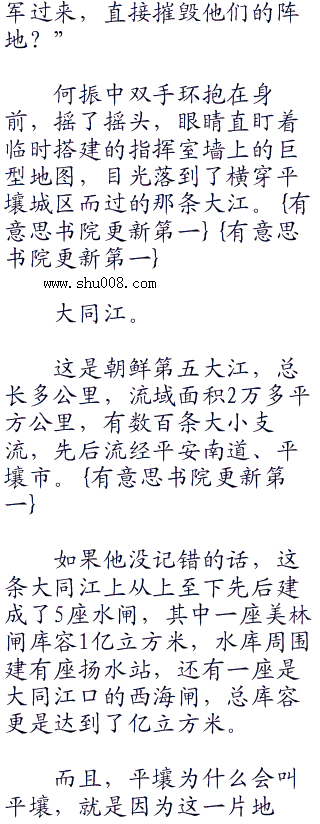 军过来，直接摧毁他们的阵
地？”
何振中双手环抱在身
前，摇了摇头，眼睛直盯着
临时搭建的指挥室墙上的巨
型地图，目光落到了横穿平
壤城区而过的那条大江。{有
意思书院更新第一}{有意思
书院更新第一}
www.shu008.com
大同江。
这是朝鲜第五大江，总
长多公里，流域面积2万多平
方公里，有数百条大小支
流，先后流经平安南道、平
壤市。{有意思书院更新第
一}
如果他没记错的话，这
条大同江上从上至下先后建
成了5座水闸，其中一座美林
闸库容1亿立方米，水库周围
建有座扬水站，还有一座是
大同江口的西海闸，总库容
更是达到了亿立方米。
而且，平壤为什么会叫
平壤，就是因为这一片地